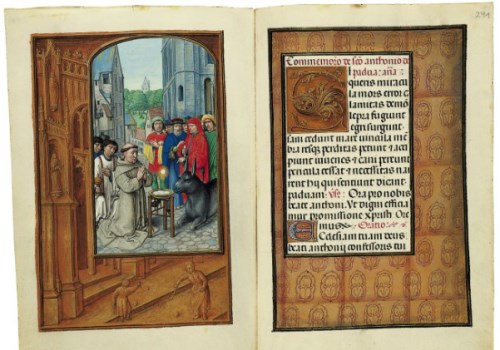 Commemoro de sco anthonio de
padua. aña.
S quens miracu
la mors error c
lamitas demō
lepra fugiunt
egri surgunt
sani cedunt mare vincula mem
bra resq perditas petunt et acci
piunt iuvenes et cani pereunt
pericula cessat et necessitas na
rrent hij qui sentiunt dicant
paduani. Vs. Ora pro nobis
beate anthoni. Vt digni effici
mur promissione xpristi Ore
mus. Oratio.
Ecclesiam tuam deus
beati anthonij confessoris tui